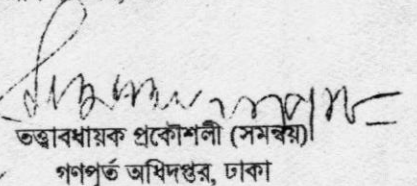 তত্ত্বাবধায়ক প্রকৌশলী (সমন্বয়)
গণপূর্ত অধিদপ্তর, ঢাকা